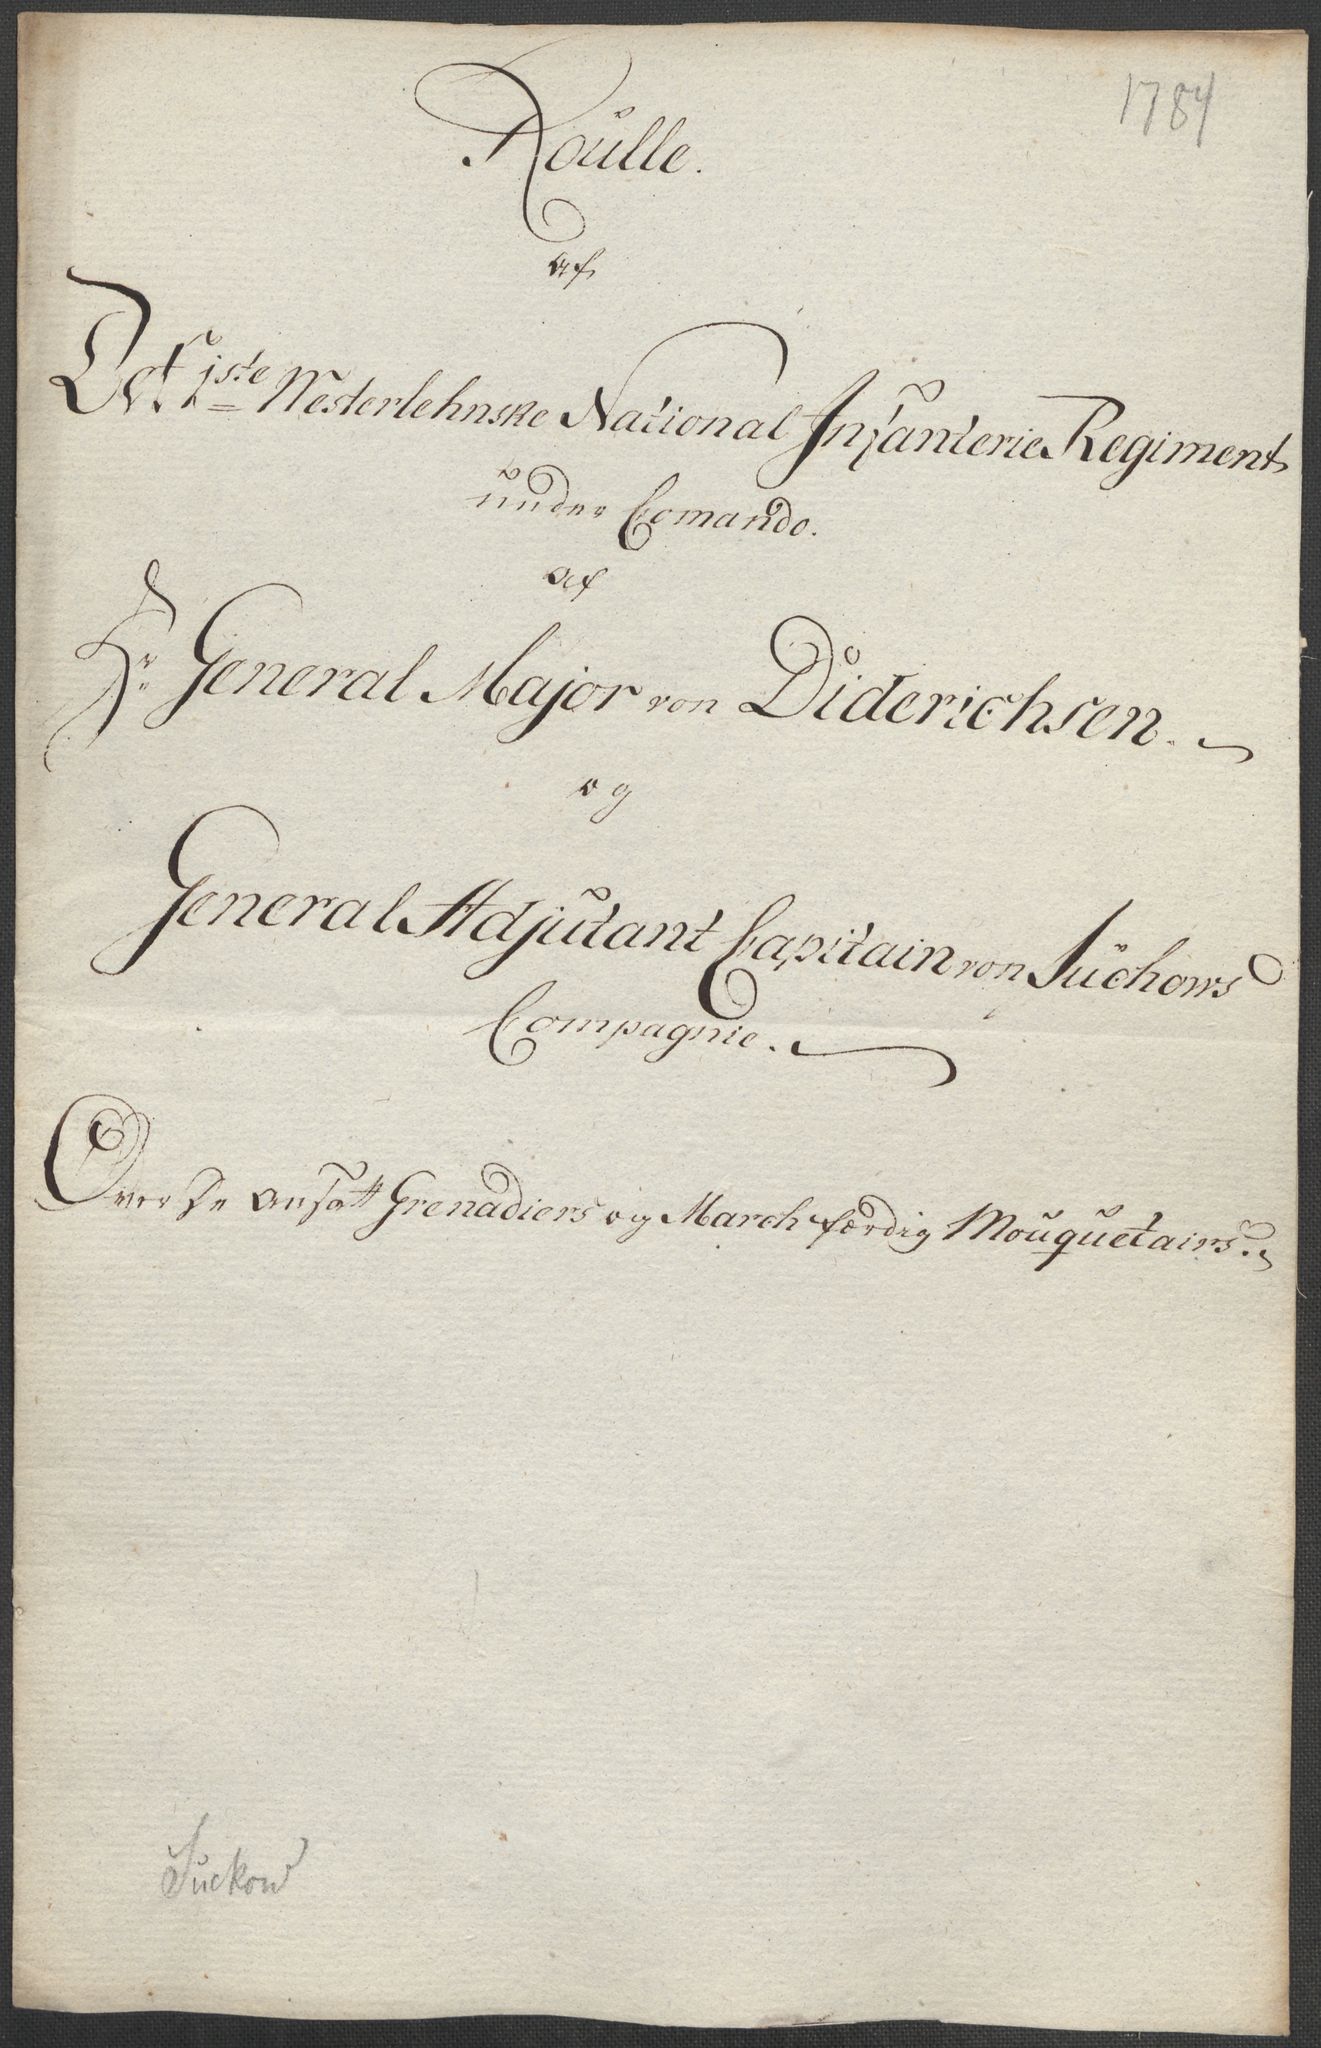 1784
Roulle.
af
Det 1ste Westerlehnske National Infanterie Regiment
under Comando.
af
Hr General Major von Diderichsen.
og
General Adjutant Capitain von Suchows
Compagnie.
Over de ansatt Grenadiers og March færdig Mouquetairs.
Suckow